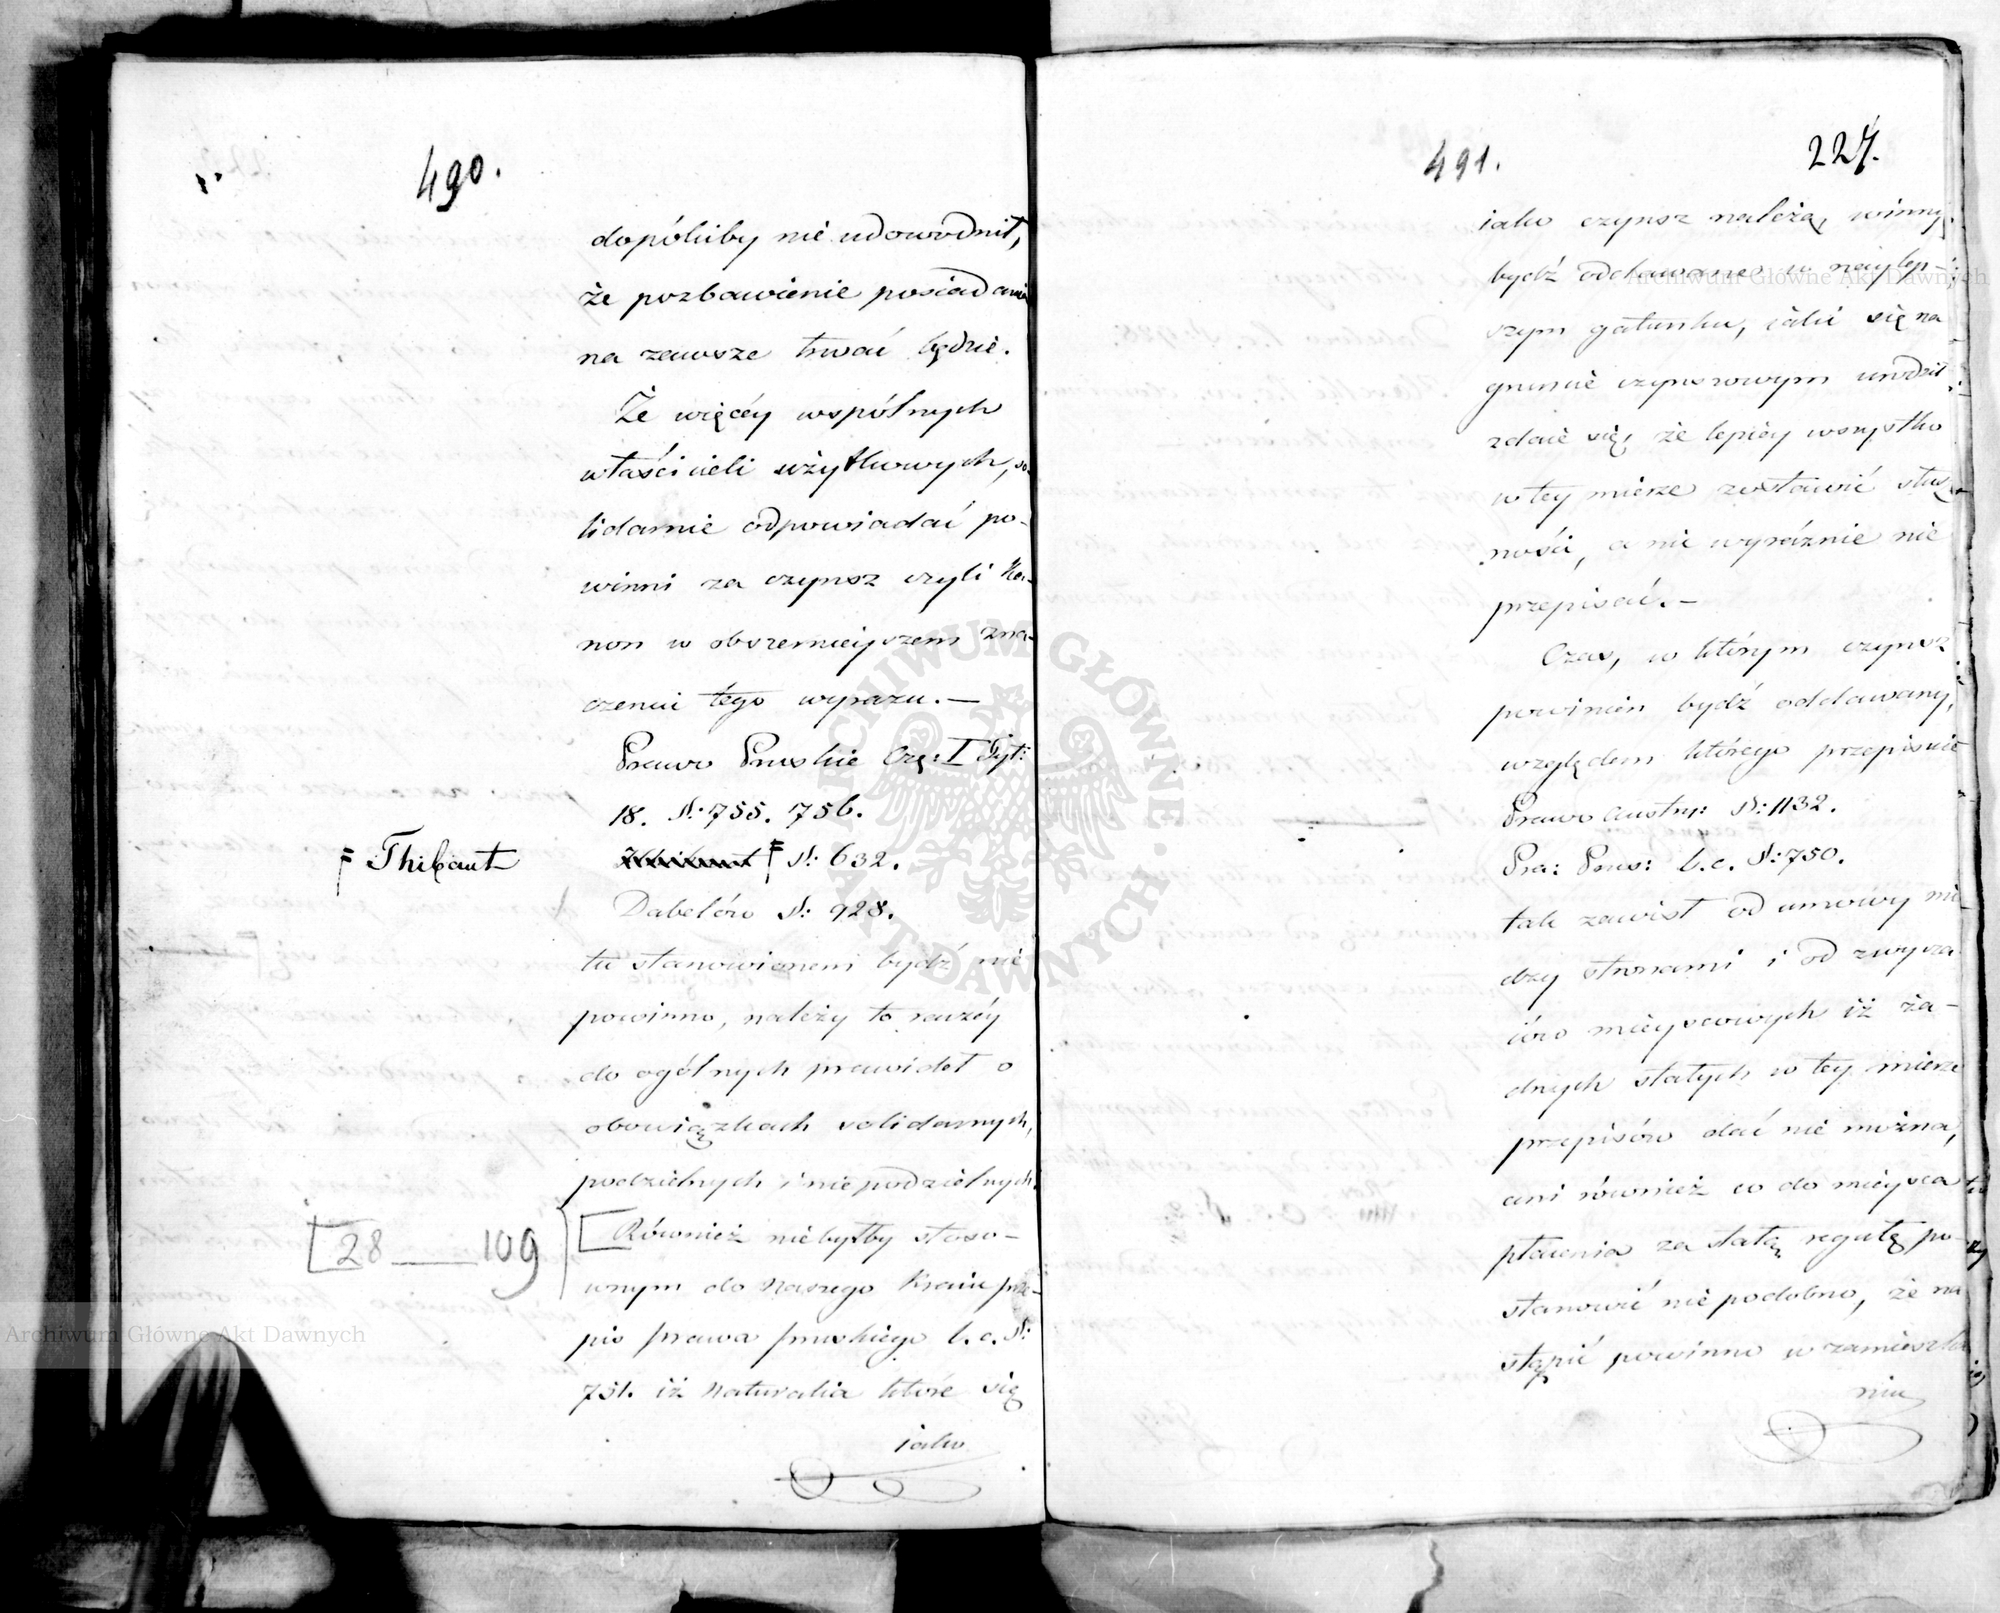 490.
dopókiby nie udowodnił,
że pozbawienie posiadania
na zawsze trwać będzie.
Że więcéy wspólnych
właścicieli użytkowych, so-
lidarnie odpowiadać po-
winni za czynsz czyli Ka-
non w obszerniejszem zna-
czeniu tego wyrazu. —
Prawo Pruskie Czę: I Tyt:
18. §: 755. 756.
Thibaut
§: 632.
Dabelów §: 928.
tu stanowionem bydź nie
powinno, należy to raczéy
do ogólnych prawideł o
obowiązkach solidarnych,
podzielnych i niepodzielnych.
28 — 109
Również niebyłby stoso-
wnym do Naszego Kraiu prze-
pis prawa pruskiego l. c. §:
751. iż Naturalia które się
iako
491.
227.
iako czynsz należą, winny
bydź oddawane w naylep-
szym gatunku, iaki się na
gruncie czynszowym urodził
zdaie się, że lepiéy wszystko
w tey mierze zostawić słusz-
ności, a nic wyraźnie nie
przepisać. —
Czas, w którym czynsz
powinien bydź oddawany,
względem którego przepisuie
Prawo Austry: §: 1132.
Pra: Prus: l. c. §: 750.
tak zawisł od umowy mię-
dzy stronami i od zwycza-
iów mieyscowych iż ża-
dnych stałych w tey mierze
przepisów dać nie można,
ani również co do mieysca
płacenia za stałą regułę po-
stanowić nie podobno, że na
stąpić powinno w zamieszka
niu
Archiwum Główne Akt Dawnych
ARCHIWUM GŁÓWNE AKT DAWNYCH
Archiwum Główne Akt Dawnych